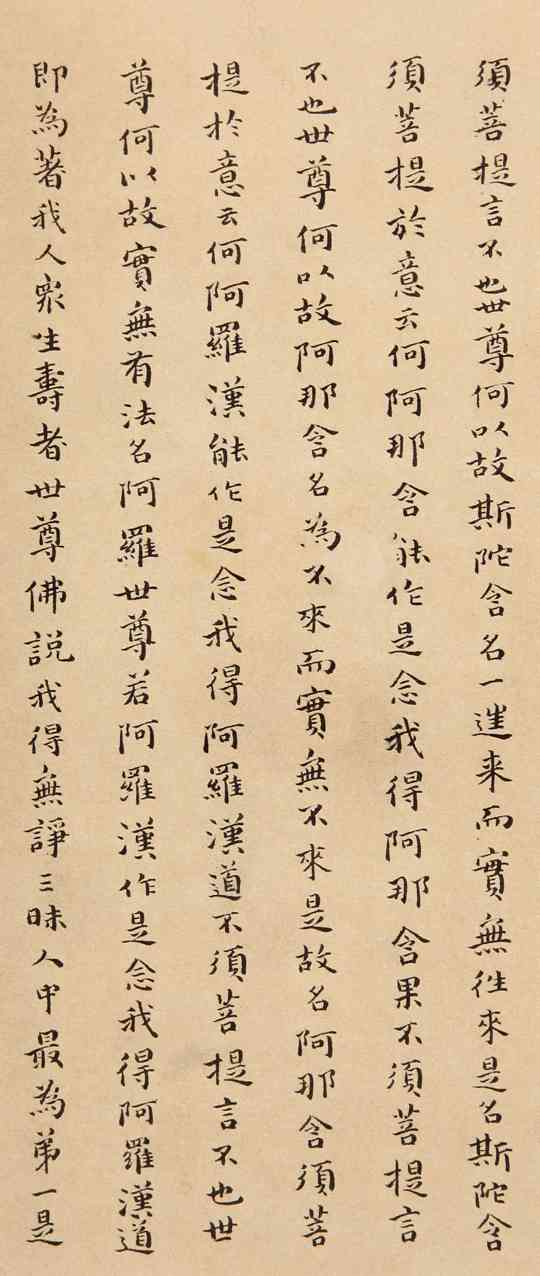 須菩提言不也世尊何以故斯陀含名一遳来而實無往來是名斯陀含
須菩提於意云何阿那含能作是念我得阿那含果不須菩提言
不也世尊何以故阿那含名為不來而實無不來是故名阿那含須菩
提於意云何阿羅漢能作是念我得阿羅漢道不須菩提言不也世
尊何以故實無有法名阿羅世尊若阿羅漢作是念我得阿羅漢道
即為著我人眾生壽者世尊佛說我得無諍三昧人中最為第一是